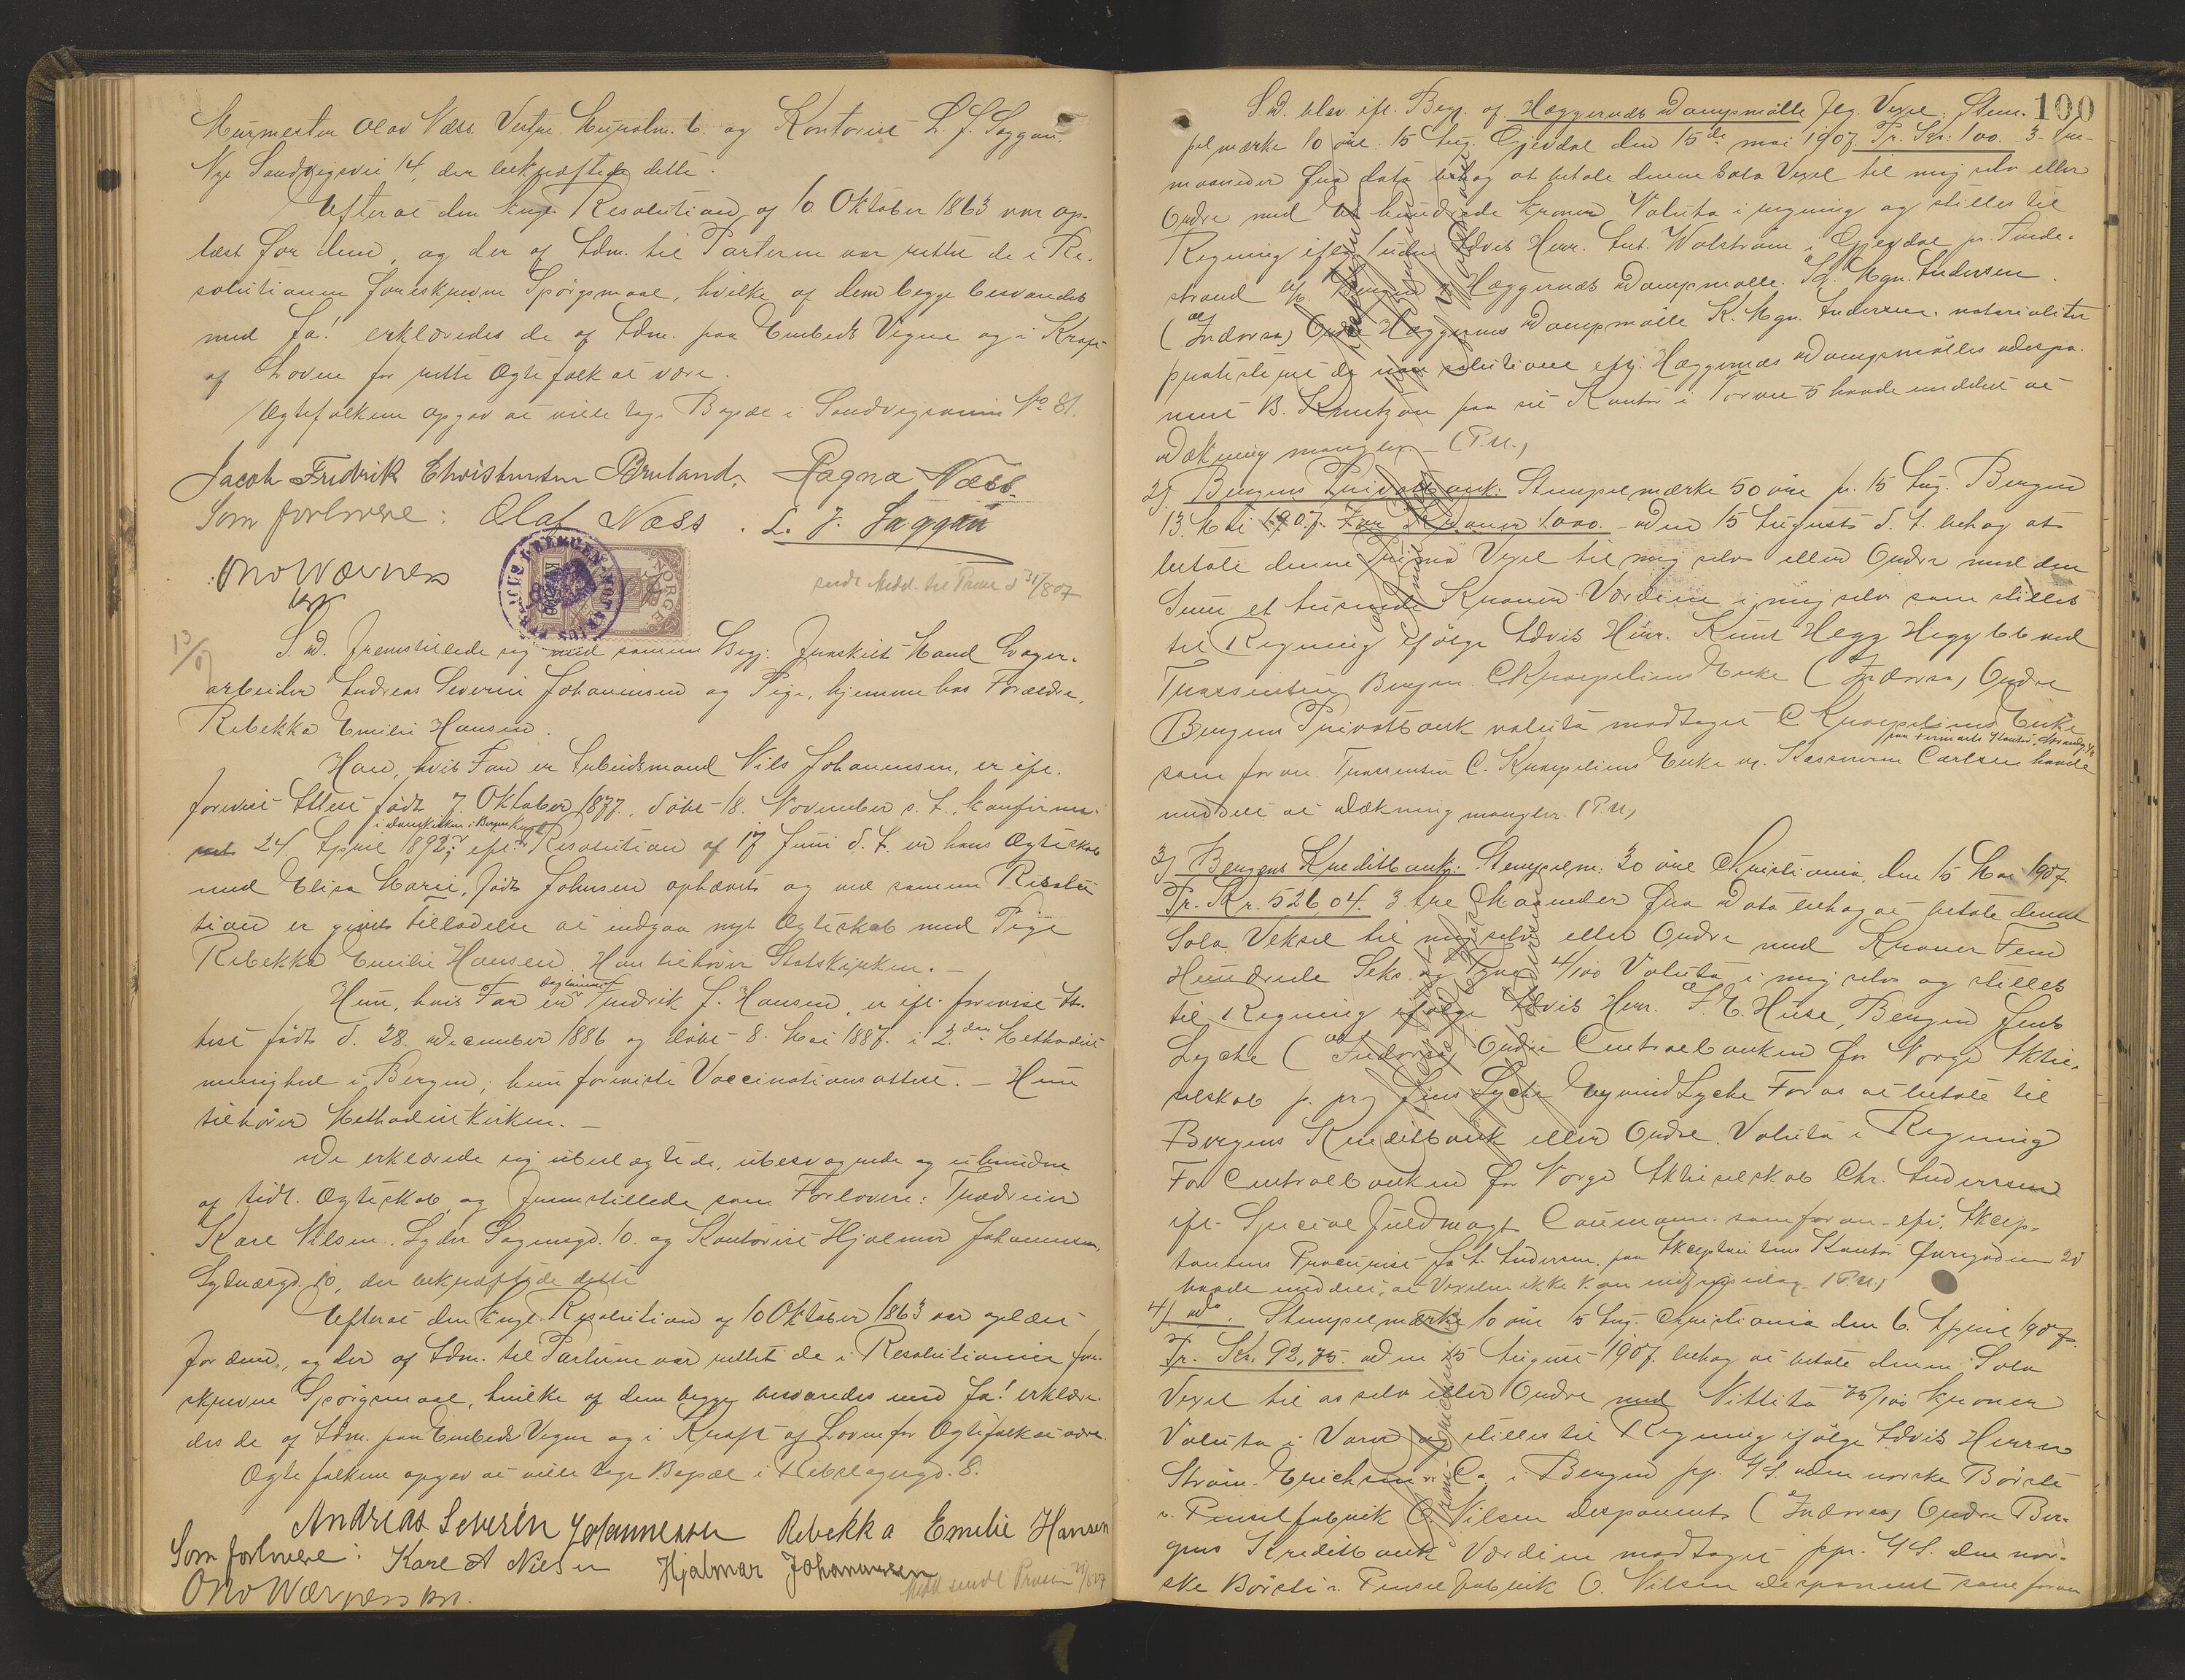 Murmester Olav Næss Vestre Murhalm. 6. og Kontorist L. J. Saggau.
Nye Sandvigsvei 14, der bekræftede dette.
Efterat den kngl. Resolution af 10. Oktober 1863 var op-
læst for dem, og der af Adm. til Parterne var rettet de i Re-
solutionen foreskrevne Spørgsmaal, hvilke af dem begge besvaredes
med Ja! erklæredes de af Adm. paa Embeds Vegne og i Kraft
af Loven for rette Ægtefolk at være.
Ægtefolkene opgav at ville tage Bopæl i Sandvigsveien No 81.
Jacob Fredrik Christensen Bruland. Ragna Næss.
Som forlovere: Olaf Næss. L. J. Saggau
Otto Wærness
kst
NORGE
sendt Medd. til Presten d 31/8 07
13/07
S. D. fremstillede sig med samme Begj: Fraskilt Mand Lager-
arbeider Andreas Severin Johannesen og Pige, hjemme hos Forældre,
Rebekka Emilie Hansen.
Han, hvis Far er Arbeidsmand Nils Johannesen, er ifl.
forevist Attest født 7. Oktober 1877, døbt 18. November s. A., konfirme-
i Domkirken i Bergen kngl.
ret 24 April 1892; ifl. Resolution af 17 Juni d. A. er hans Ægteskab
med Elisa Marie, født Johnsen ophævet og ved samme Resolu-
tion er givet Tilladelse at indgaa nyt Ægteskab med Pige
Rebekka Emilie Hansen. Han tilhører Statskirken.
Hun, hvis Far er Fredrik J. Hansen, er ifl. forevist At-
test født d. 28. December 1886 og døbt 8. Mai 1887 i 2den Methodist
menighed i Bergen; hun foreviste Vaccinationsattest. Hun
tilhører Methodistkirken.
De erklærede sig ubeslægtede, ubesvogrede og ubundne
af tidl. Ægteskab og fremstillede som Forlovere:
Karl Nilsen, Lyder Sagensgd. 10. og Kontorist Hjalmar Johannesen,
Sydnæsgd. 10, der bekræftede dette
Efterat den kngl. Resolution af 10 Oktober 1863 var oplæst
for dem, og der af Adm. til Parterne var rettet de i Resolutionen fore-
skrevne Spørgsmaal, hvilke af dem begge besvaredes med Ja! erklære-
des de af Adm. paa Embeds Vegne og i Kraft af Loven for Ægtefolk at være.
Ægtefolkene opgav at ville tage Bopæl i Rebslagergd. 8.
Andreas Severin Johannessen Rebekka Emilie Hansen
Som forlovere: Karl A Nilsen Hjalmar Johannessen
Otto Wærness kst. Medd sendt Presten 31/8 07
100
S. D. blev ifl. Begj. af Hæggernæs Dampmølle flg. Vexel: Stem-
pelmærke 10 øre: 15 Aug. Gjevdal den 15de mai 1907. Pr. Kr: 100. 3- tre-
maaneder fra dato behag at betale denne Sola Vexel til mig selv eller
Ordre med Et hundrede Kroner Valuta i regning og stilles til
Regning ifølge uden Advis Herr. Ant. Walstrøm i Gjevdal pr. Tvede-
strand Hæggernæs Dampmølle. K. Mgn. Andersen.
(Indorso) Ordre Hæggernæs Dampmølle K. Mgn. Andersen. notarialiter
protesteret de non solutione efter Hæggernæs Dampmølles dispo-
nent B. Knutzon paa sit Kontor i Torvet 5 havde meddelt at
Dækning mangler. (P.M.)
2). Bergens Privatbank. Stempelmærke 50 øre pr. 15 Aug. Bergen
13. Mai 1907. For Kroner 1000. Den 15 Augusts d. A. behag at
betale denne prima Vexel til mig selv eller Ordre med den
Sum et tusende Kroner Værdien i mig selv som stilles
til Regning ifølge Advis Herr. Knut Hegg Hegg
Trassenten Bergen. C Knaepelius Enke (Indorso) Ordre
Bergens Privatbank valuta modtaget C Knaepelius Enke
paa Firmaets Kontor,
som foran. Trassenten C. Knaepelius Enke v. Kasserer Carlsen havde
meddelt at Dækning mangler. (P.M.)
3) Bergens Kreditbank: Stempelm. 30 øre Christiania, den 15 Mai 1907.
Pr. Kr. 526,04. 3 tre Maaneder fra Dato behag at betale denne
Sola Veksel til mig selv eller Ordre med Kroner Fem
Hundrede Seks og Tyve 4/100 Valuta i mig selv og stilles
til Regning ifølge Advis Herr. F. C. Huse, Bergen Jens
Lyche (Indorso) Ordre Centralbanken for Norge Aktie-
selskab p. pr. Jens Lyche Eyvind Lyche For os at betale til
Bergens Kreditbank eller Ordre. Valuta i Regning
For Centralbanken for Norge Aktieselskab Chr. Anderssen
ifl. Special fuldmagt Caumann. som foran efr. Akcep-
tantens Procurist paa Akceptantens Kontor Øvregaden 20
havde meddelt, at Vexelen ikke kan indfries idag (P.M.)
4). do. Stempelmærke 10 øre 15 Aug. Christiania den 6. April 1907.
Pr. Kr. 92,75. Den 15 August 1907. behag at betale denne Sola
Vexel til os selv eller Ordre med Nittito 75/100 kroner
Valuta i Varer og stilles til Regning ifølge Advis Herrn
Strøm-Erichsen & Co i Bergen pp. A/S. den norske Børste
& Penselfabrik O. Nilsen disponent (Indorso) Ordre Ber-
gens Kreditbank Værdien modtaget ppr. A/S. den nor-
ske Børste & Penselfabrik O. Nilsen disponent som foran